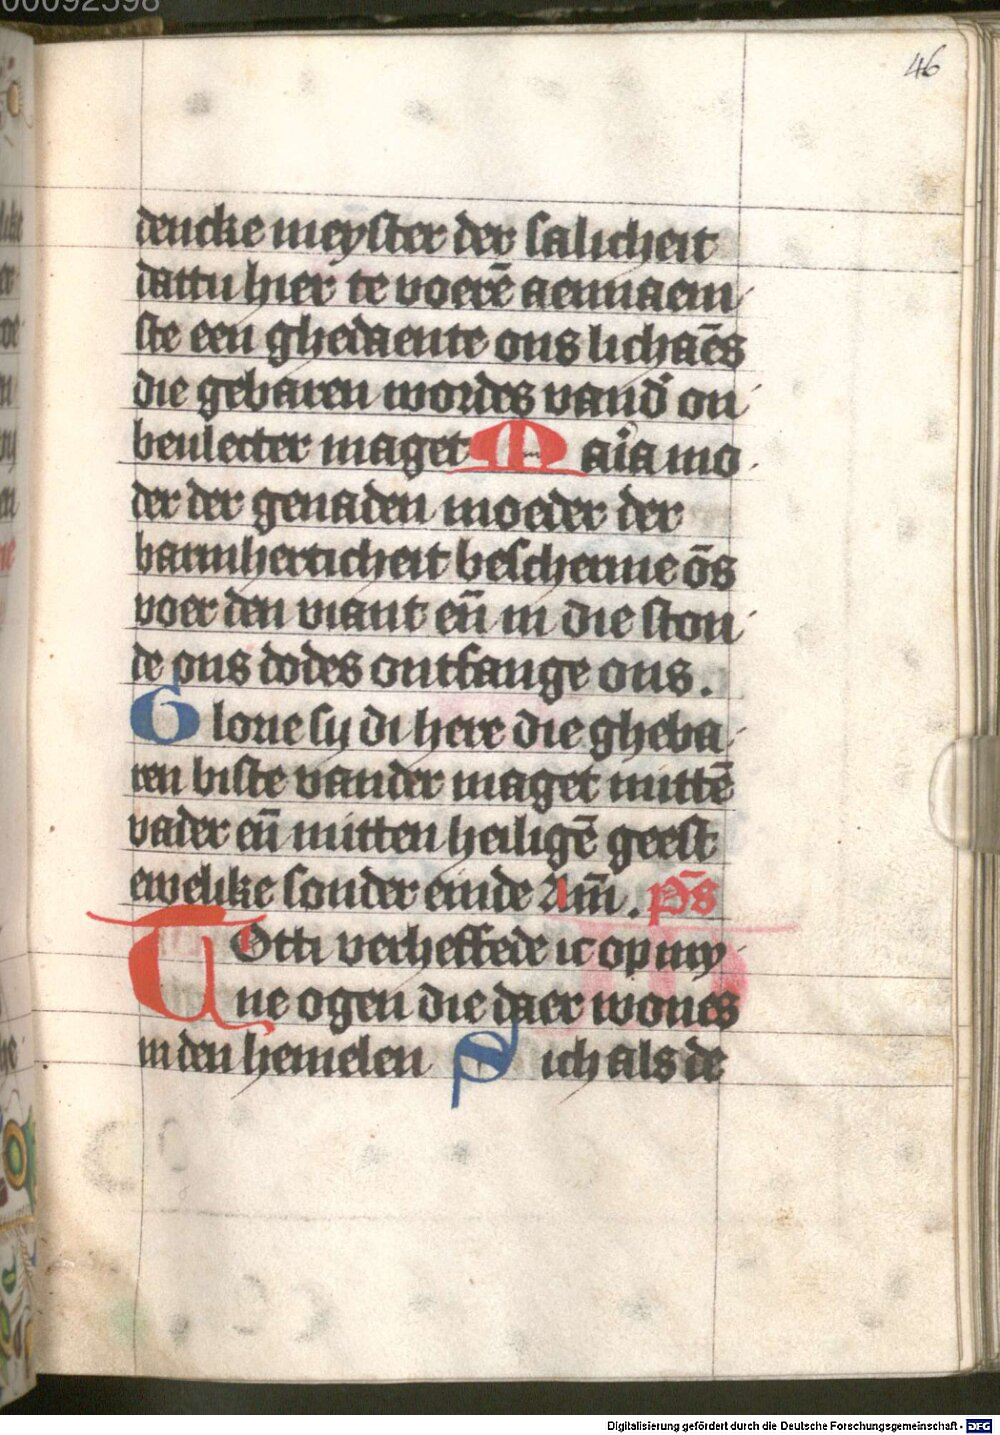 46
dencke meyster der salicheit
dattu hier te voerē aennaem
ste een ghedaente ons lichāes
die gebaren wordes vand' on
beulecter maget Maia mo
der der genaden moeder der
barmherticheit bescherme ōs
voer den viant eñ in die ston
de ons dodes ontfange ons.
Glorie sy di here die gheba
ren biste vander maget mittē
vader eñ mitten heiligē geest
ewelike sonder einde Am̄. Ps̄
TOtti verheffede ic op my
ne ogen die daer wones
in den hemelen Sich als de
Digitalisierung gefördert durch die Deutsche Forschungsgemeinschaft - DFG